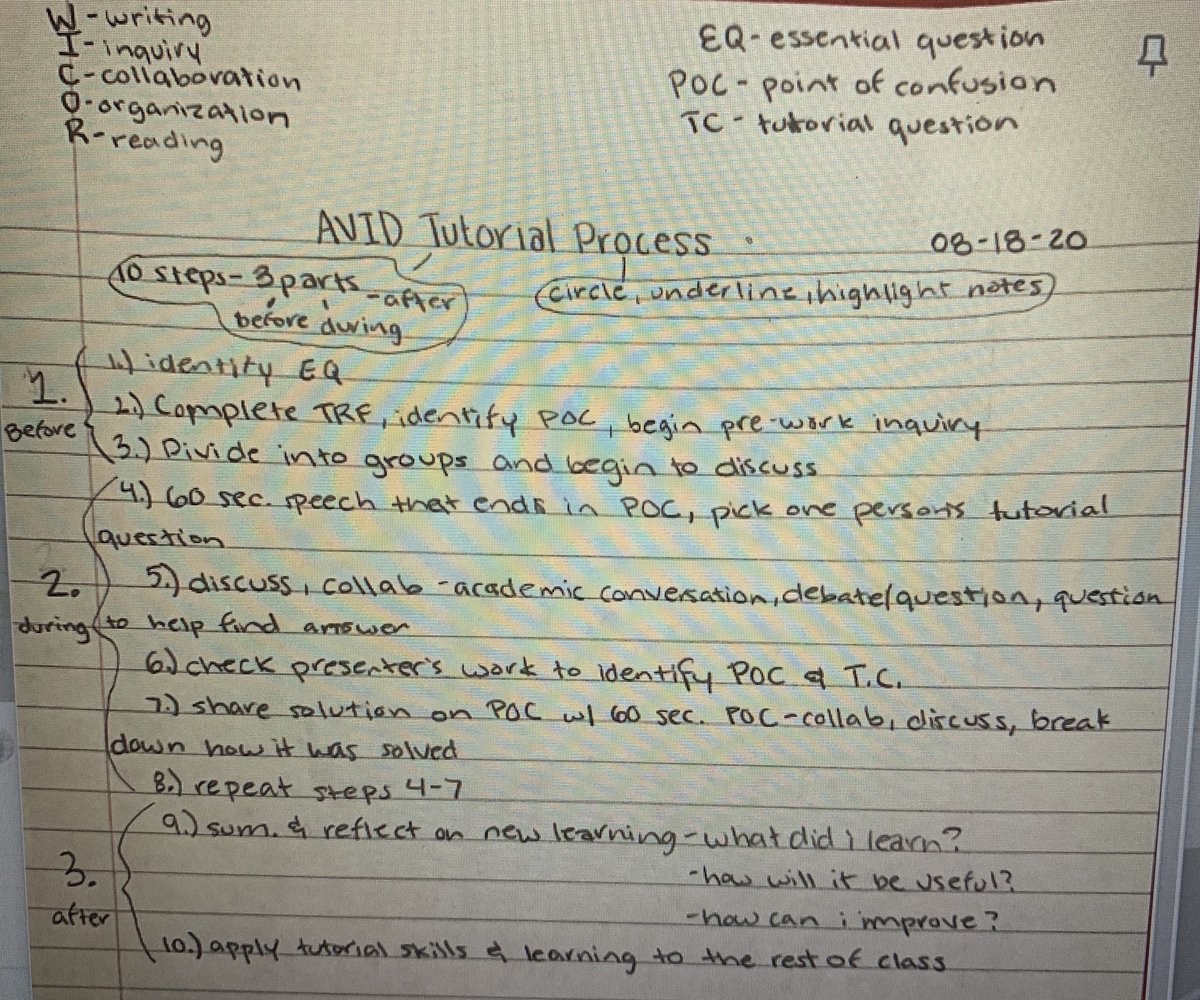 W-writing
I-inquiry
C-collaboration
O-organization
R-reading
EQ-essential question
POC-point of confusion
TC-tutorial question
AVID Tutorial Process
08-18-20
10 steps-3 parts
-after
before during
circle, underline, highlight notes
1.
Before
1.) identify EQ
2.) Complete TRF, identify POC, begin pre-work inquiry
3.) Divide into groups and begin to discuss
2.
during
4.) 60 sec. speech that ends in POC, pick one person's tutorial
question
5.) discuss, collab-academic conversation, debate/question, question
to help find answer
6.) check presenter's work to identify POC & T.C.
7.) share solution on POC w/ 60 sec. POC-collab, discuss, break
down how it was solved
8.) repeat steps 4-7
3.
after
9.) sum. & reflect on new learning-what did i learn?
-how will it be useful?
-how can i improve?
10.) apply tutorial skills & learning to the rest of class